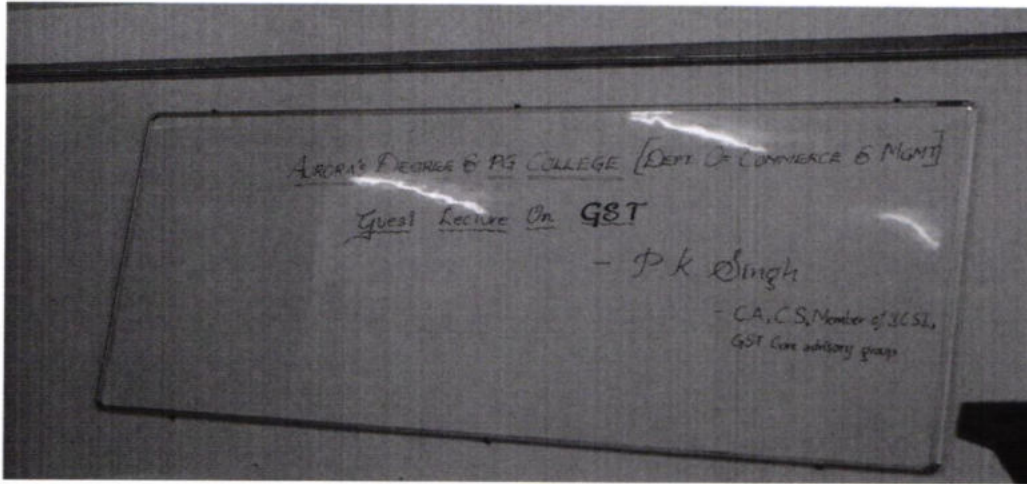 AURORA'S DEGREE & PG COLLEGE [DEPT OF COMMERCE & MGMT]
Guest Lecture On GST
- P K Singh
- CA, CS, Member of ICSI,
GST Core advisory group